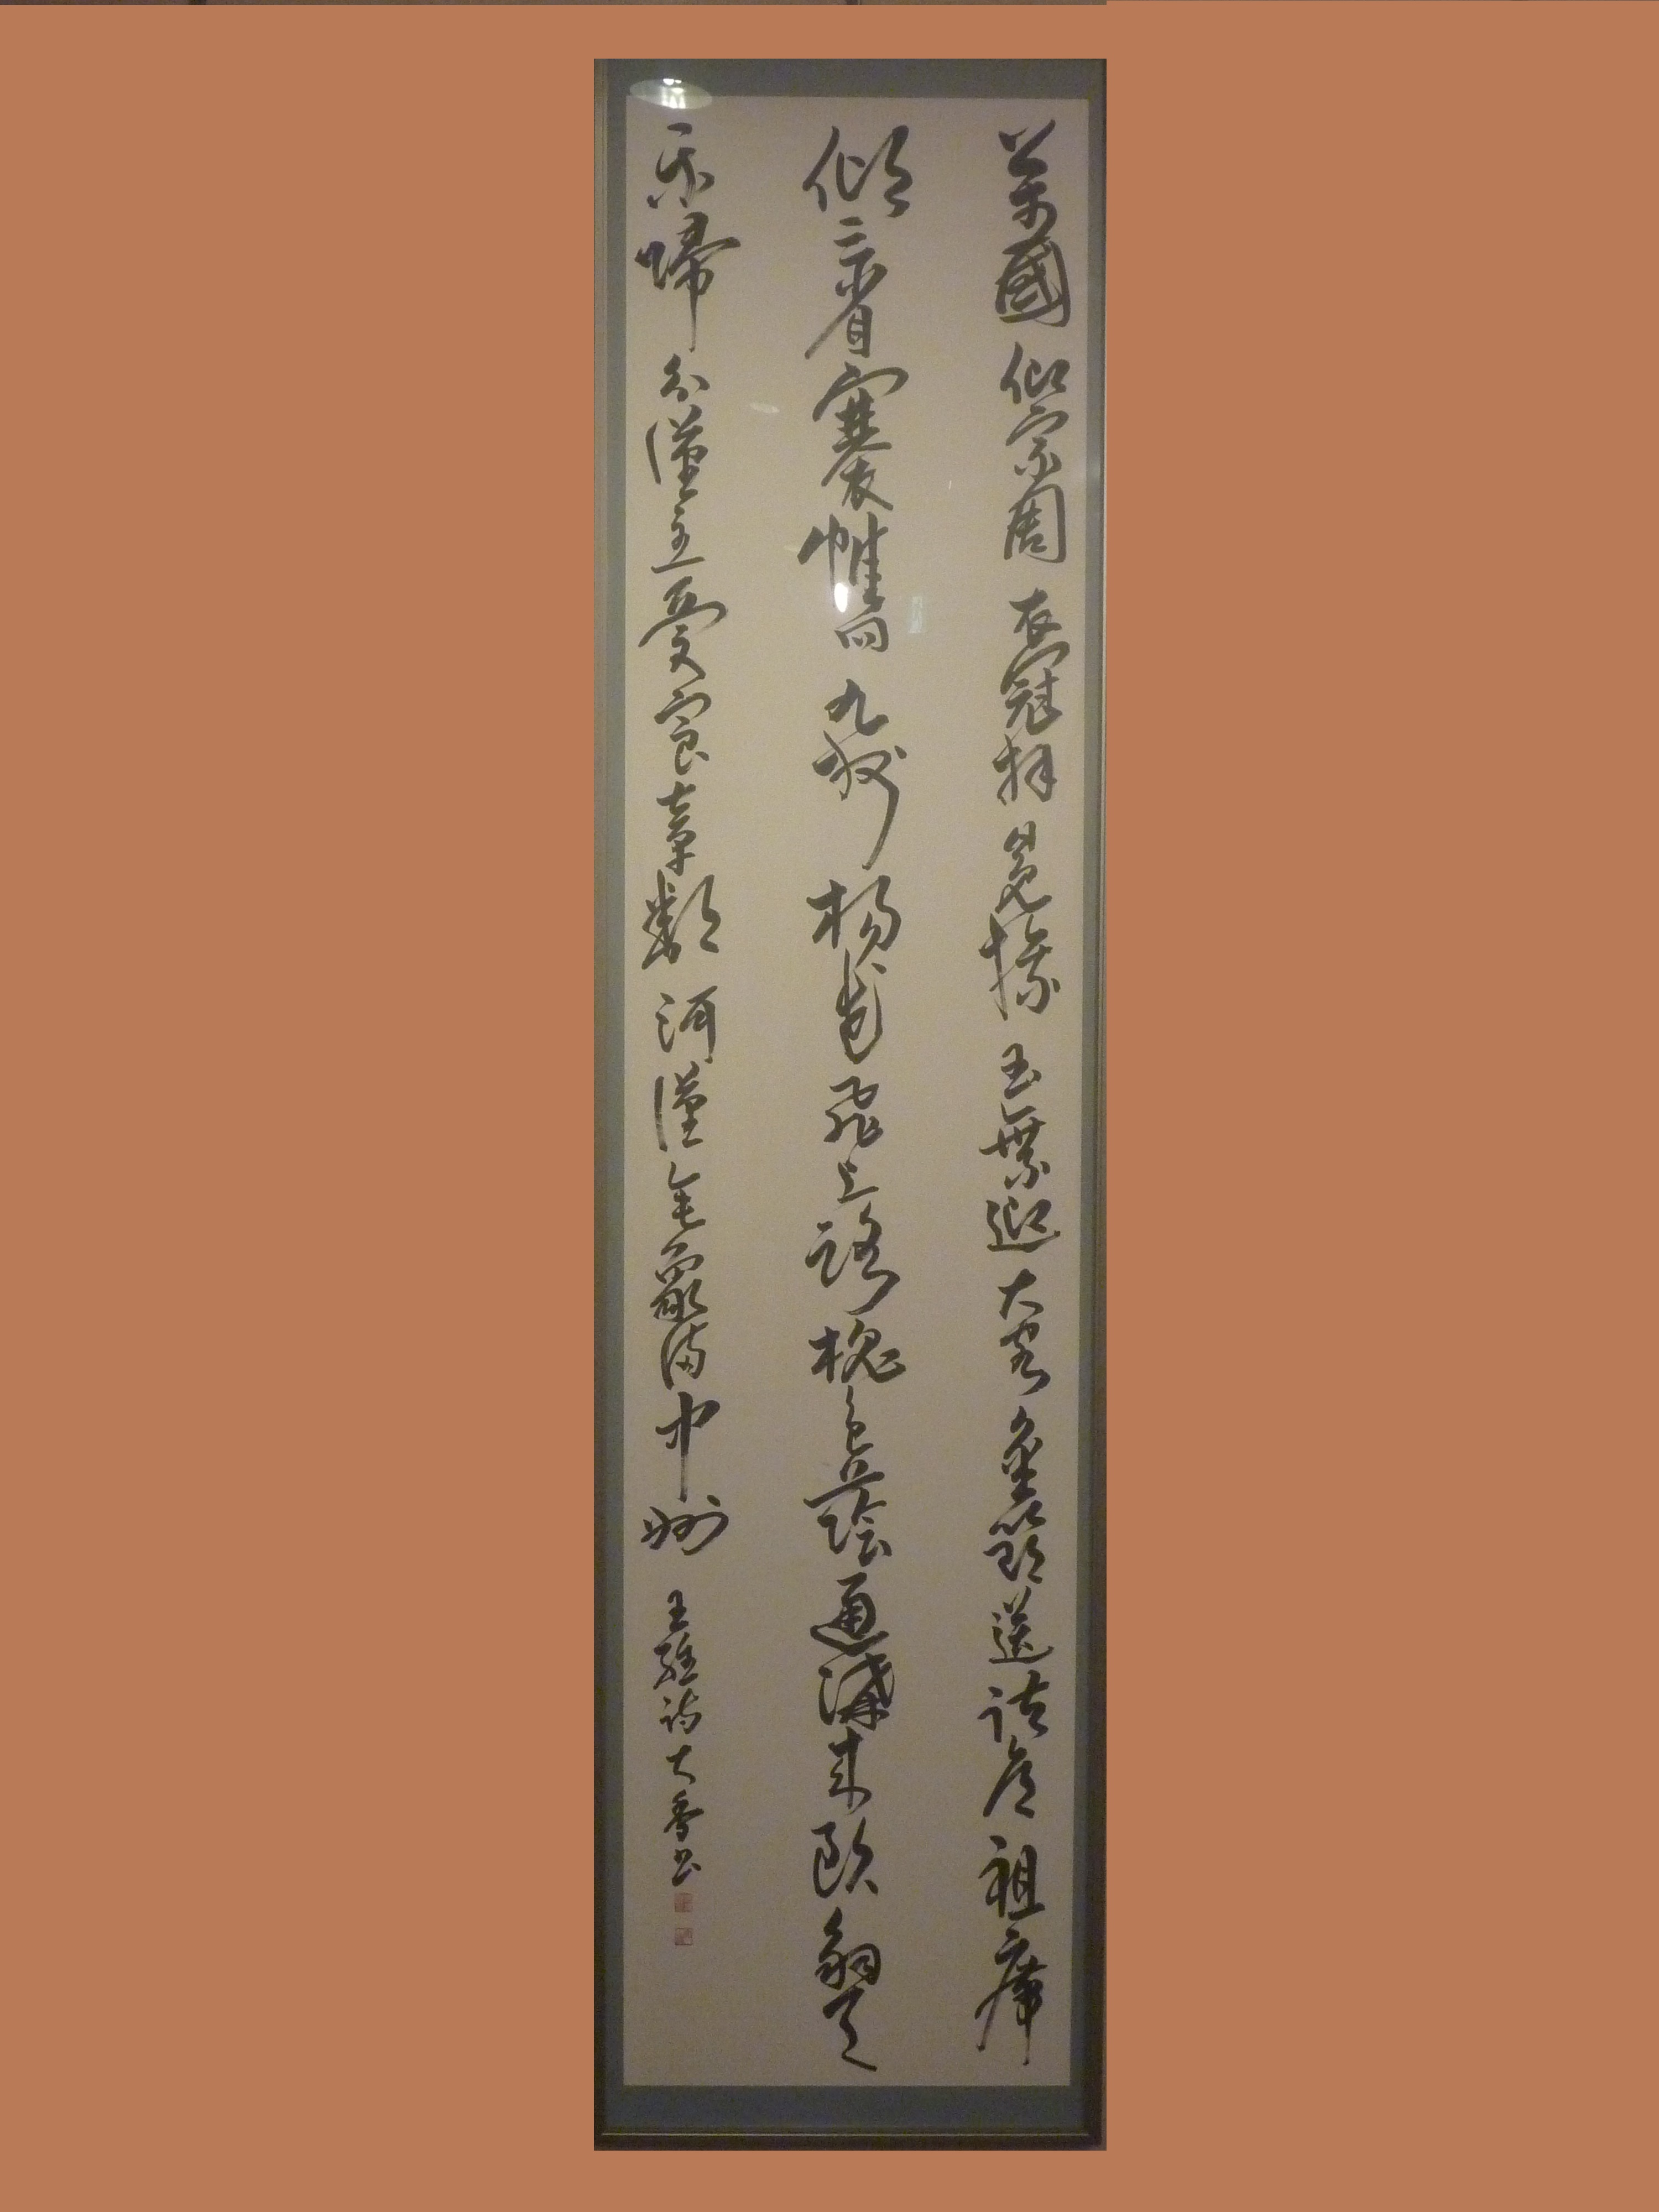 萬國仰宗周衣冠拜冕旒玉乘迎大客金節送諸侯祖席
傾三省褰帷向九州楊花飛上路槐色蔭通溝來預鈞天
樂歸分漢主憂宸章類河漢垂象滿中州 王維詩大香书